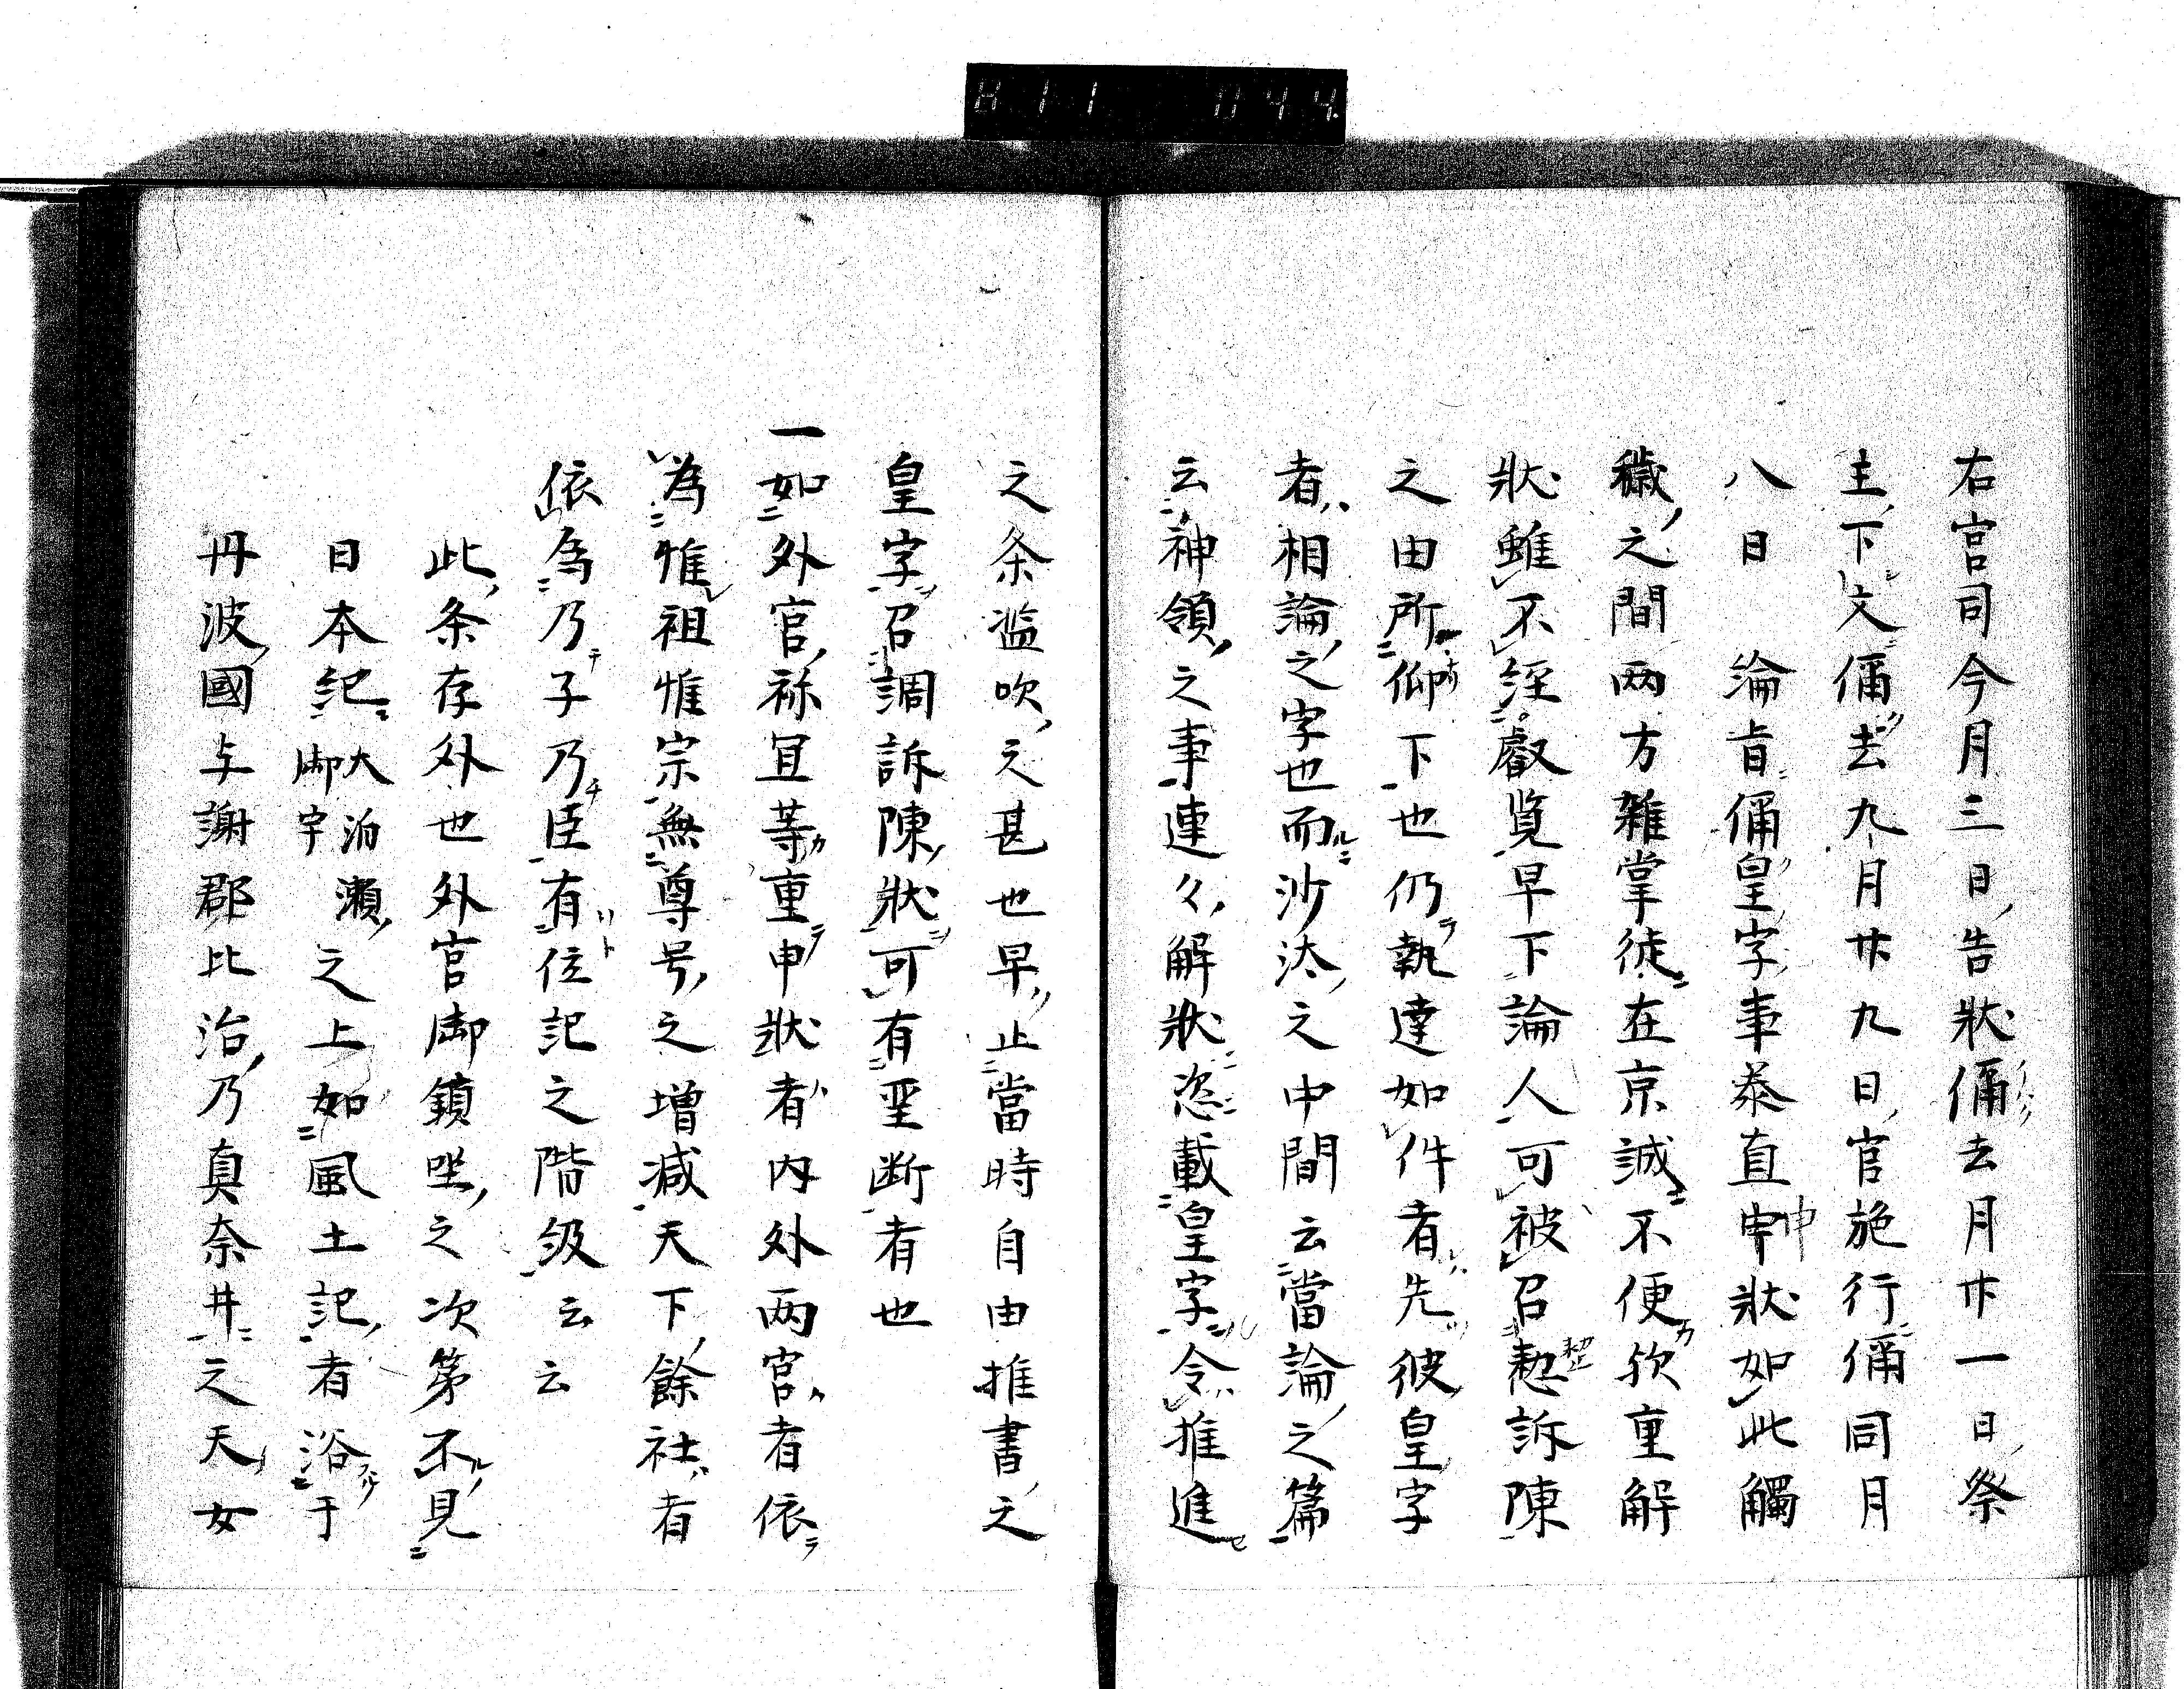 H11 044.
右宮司今月三日告狀偁去月廿一日祭
主下文偁去九月廿九日官施行偁同月
八日 綸旨偁皇字事泰直申狀如此觸
穢之間両方雑掌徒在京誠不便欤重解
狀雖不経叡覧早下論人可被召整訴陳
之由所仰下也仍執達如件者先彼皇字
者相論之字也而沙汰之中間云當論之篇
云神領之事連々解狀恣載皇字令推進
之条濫吹之甚也早止當時自由推書之
皇字召調訴陳狀可有聖断者也
一如外宮祢冝等重申狀者内外両宮者依
為惟祖惟宗無尊号之増减天下餘社者
依為乃子乃臣有位記之階級云云
此条存外也外宮御鎮坐之次第不見
日本記大泊瀬御宇之上如風土記者浴于
丹波國与謝郡比治乃真奈井之天女